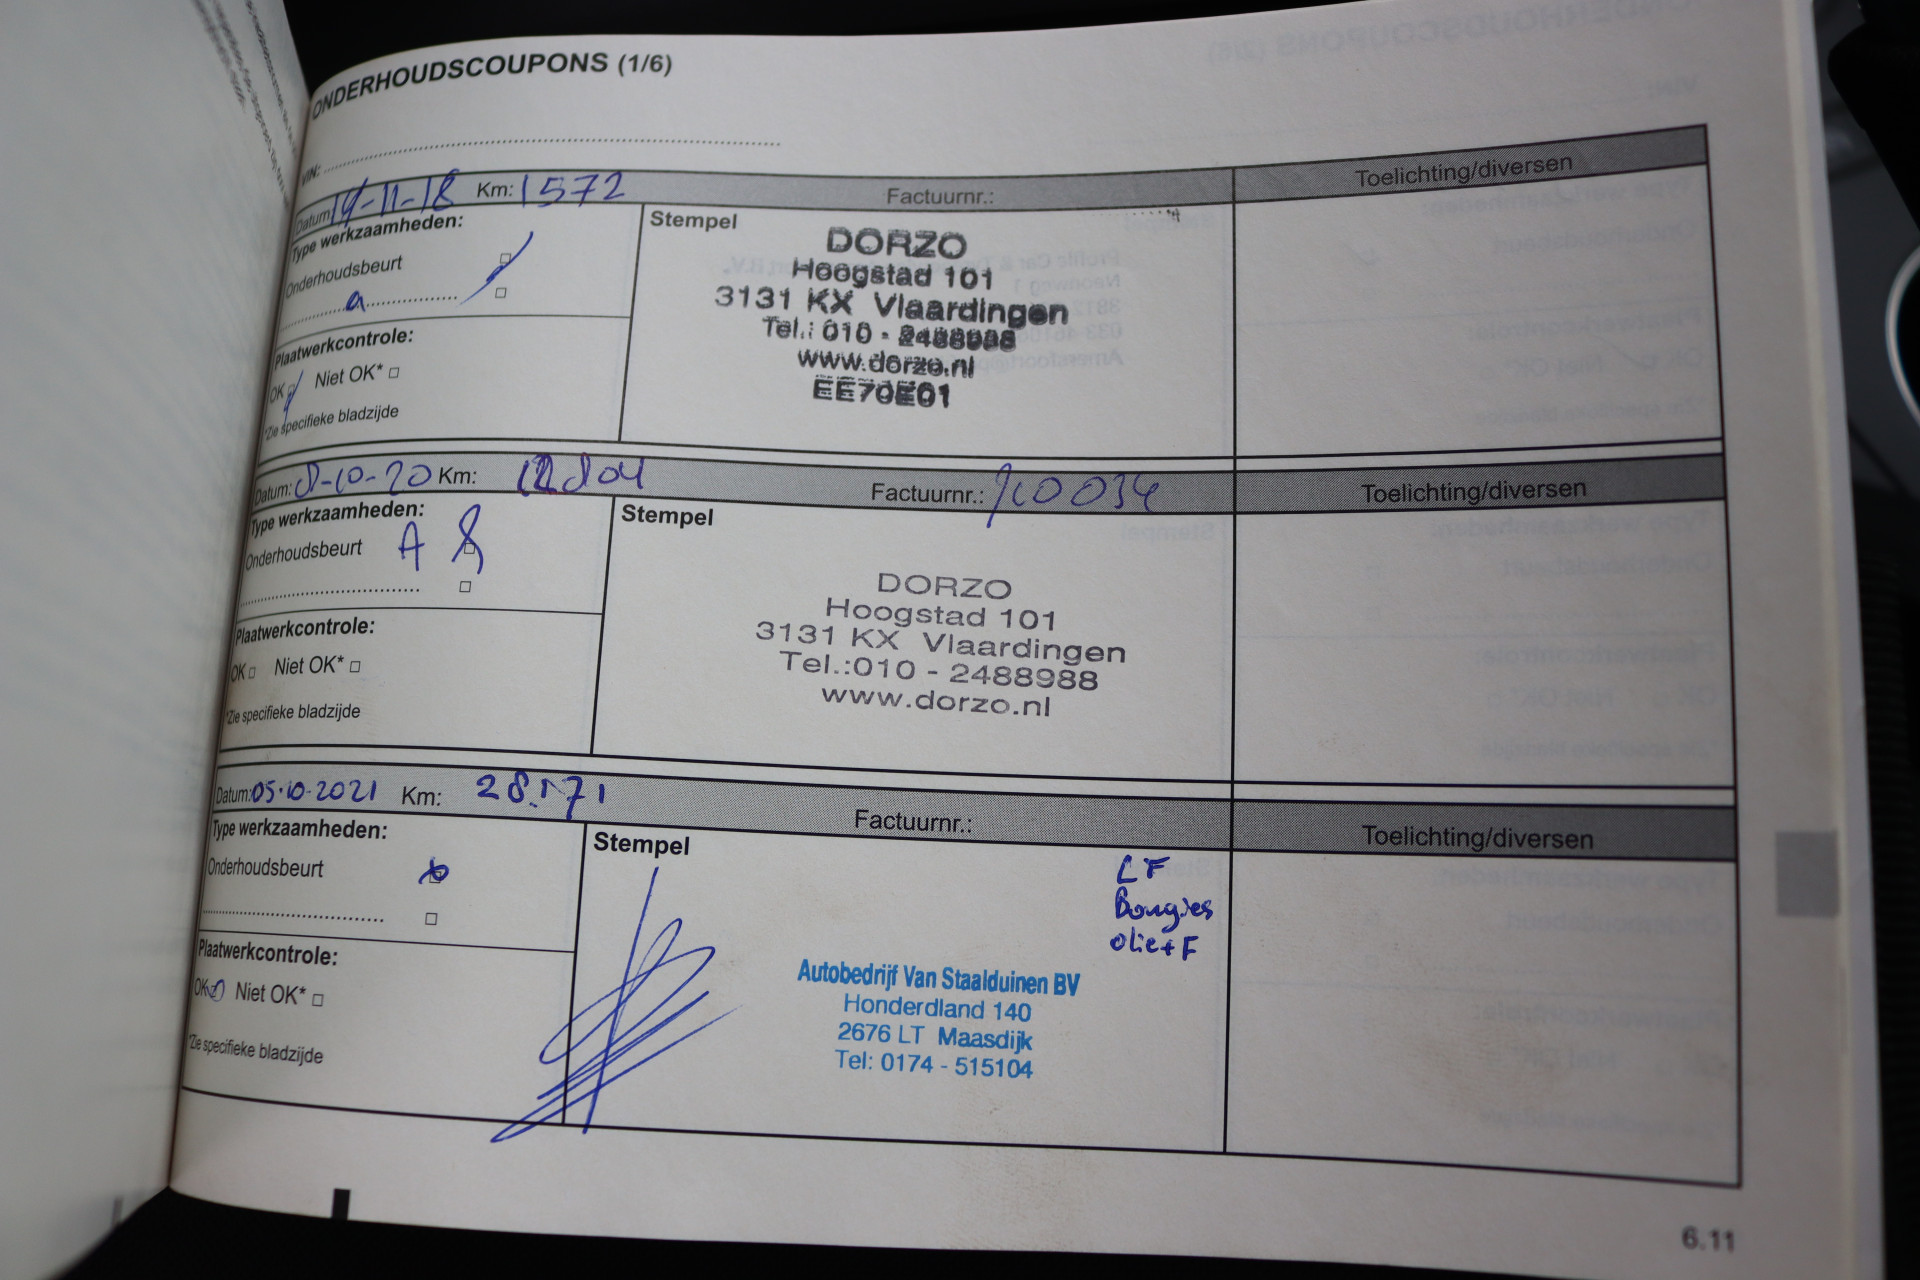 ONDERHOUDSCOUPONS (1/6)
VIN:
Datum: 14-11-18 Km: 1572 Factuurnr.: Toelichting/diversen
Type werkzaamheden:
Onderhoudsbeurt
a
Plaatwerkcontrole:
OK Niet OK*
*Zie specifieke bladzijde
Stempel
DORZO
Hoogstad 101
3131 KX Vlaardingen
Tel.: 010 - 2488988
www.dorzo.nl
EE70E01
Datum: Km: Factuurnr.: Toelichting/diversen
Type werkzaamheden:
Onderhoudsbeurt A
Plaatwerkcontrole:
OK Niet OK*
*Zie specifieke bladzijde
Stempel
DORZO
Hoogstad 101
3131 KX Vlaardingen
Tel.:010 - 2488988
www.dorzo.nl
Datum: 05-10-2021 Km: 28.171 Factuurnr.: Toelichting/diversen
Type werkzaamheden:
Onderhoudsbeurt
Plaatwerkcontrole:
OK Niet OK*
*Zie specifieke bladzijde
Stempel
LF
Bougies
olie+F
Autobedrijf Van Staalduinen BV
Honderdland 140
2676 LT Maasdijk
Tel: 0174 - 515104
6.11